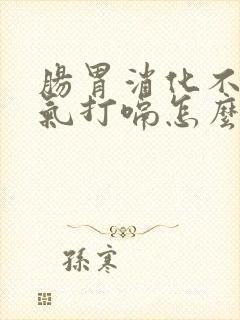 腸胃消化不
氣打嗝怎麼
孫寒